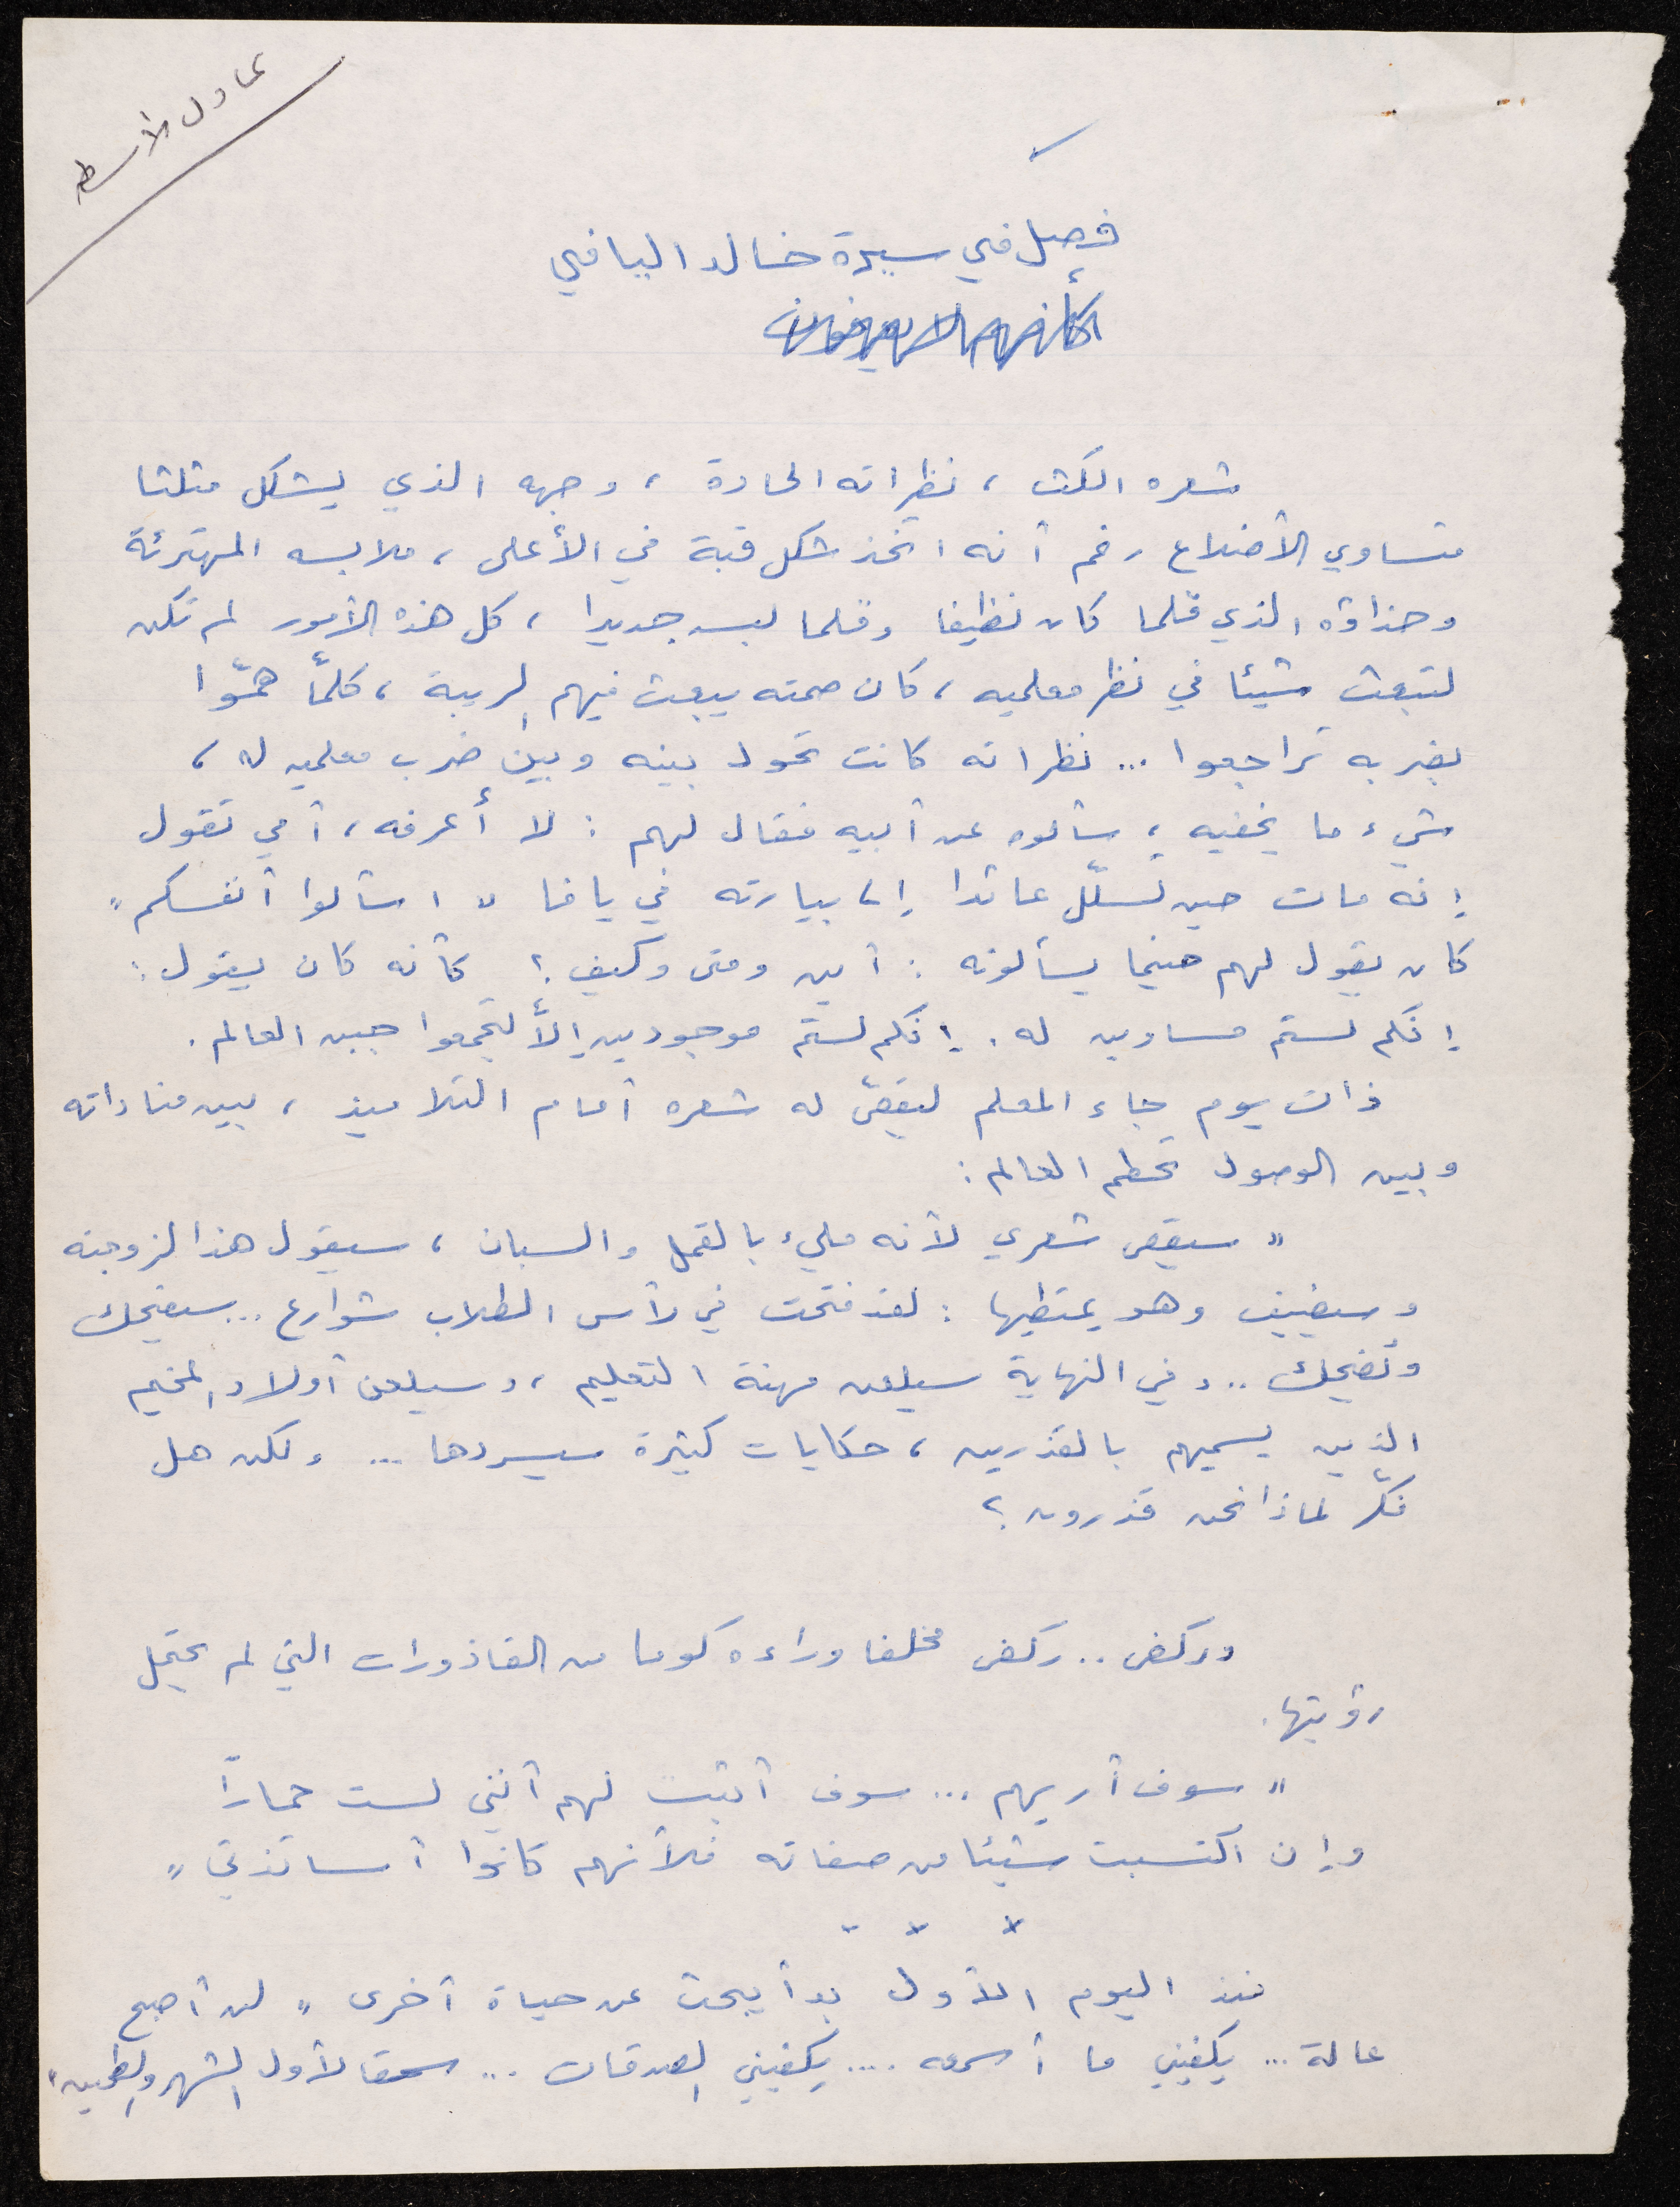 عادل الأسطه
فصل في سيرة خالد اليافي
شعره الكث ، نظراته الحادة ، وجهه الذي يشكل مثلثا
متساوي الأضلاع رغم أنه اتخذ شكل قبة في الأعلى ، ملابسه المهترئة
وحذاؤه الذي قلما كان نظيفا وقلما لبسه جديدا ، كل هذه الأمور لم تكن
لتبعث شيئا في نظر معلميه ، كان صمته يبعث فيهم الريبة ، كلمّا همّوا
بضربه تراجعوا ... نظراته كانت تحول بينه وبين ضرب معلميه له ،
شيء ما يخفيه ، سألوه عن أبيه فقال لهم : لا أعرفه ، أمي تقول
إنه مات حين تسلّل عائدا إلى بيارته في يافا " اسألوا أنفسكم "
كان يقول لهم حينما يسألونه : أين ومتى وكيف ؟ كأنه كان يقول :
إنكم لستم مساوين له . إنكم لستم موجودين إلاّ لتجمعوا جبن العالم .
ذات يوم جاء المعلم ليقصّ له شعره أمام التلاميذ ، بين مناداته
وبين الوصول تحطم العالم :
" سيقص شعري لأنه مليء بالقمل والسبان ، سيقول هذا لزوجته
وسيضيف وهو يمتطيها : لقد فتحت في رأس الطلاب شوارع .. سيضحك
وتضحك .. وفي النهاية سيلعن مهنة التعليم ، وسيلعن أولاد المخيم
الذين يسميهم بالقذرين ، حكايات كثيرة سيسردها ... ولكن هل
فكّر لماذا نحن قذرون ؟
وركض .. ركض مخلفا وراءه كوما من القاذورات التي لم يحتمل
رؤيتها .
" سوف أريهم ... سوف أثبت لهم أنني لست حماراً
وإن اكتسبت شيئا من صفاته فلأنهم كانوا أساتذتي "
× × ×
منذ اليوم الأول بدأ يبحث عن حياة أخرى " لن أصبح
عالة ... يكفيني ما أسمعه .... يكفيني الصدقات ... سحقا لأول الشهر والطحين "